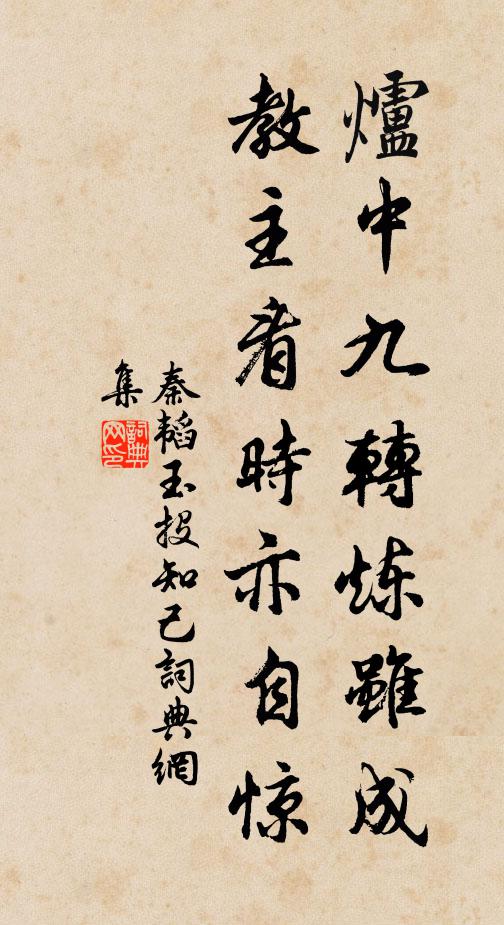 爐中九轉炼雖成
教主看時亦自惊
秦韬玉投知己詞典網
集
詞典
网印